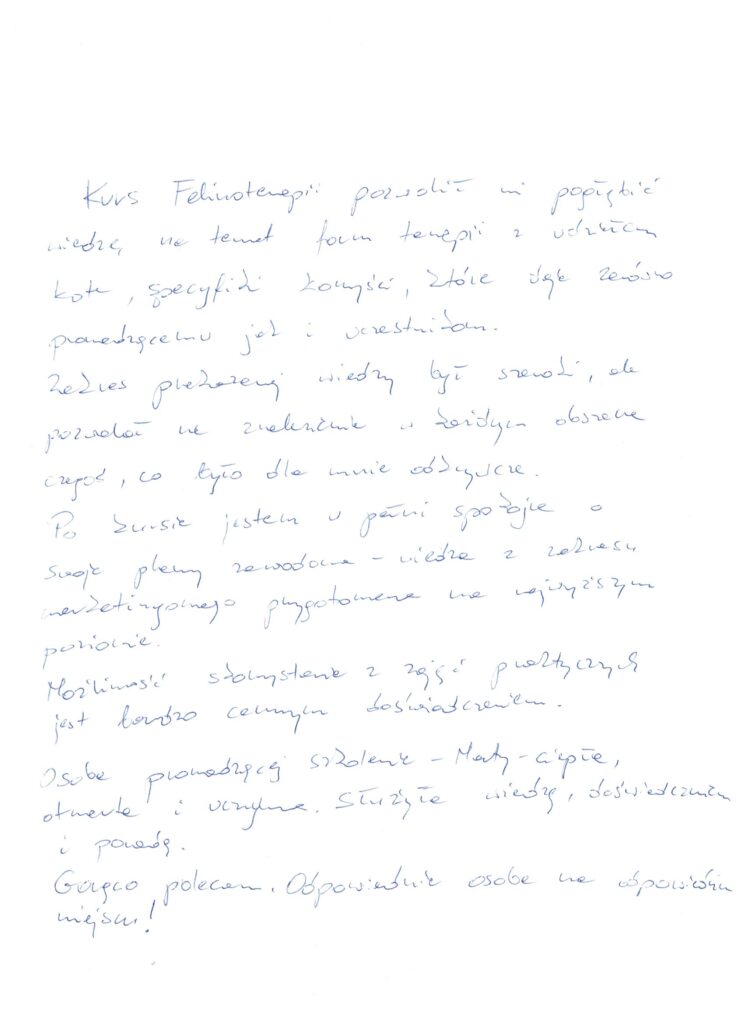 Kurs Felinoterapii pozwolił mi pogłębić
wiedzę na temat form terapii z udziałem
kota, specyfiki korzyści, które daje zarówno
prowadzącemu jak i uczestnikom.
Zakres przekazanej wiedzy był szeroki, ale
pozwalał na znalezienie w każdym obszarze
czegoś, co było dla mnie odkrywcze.
Po kursie jestem w pełni spokojna o
swoje plany zawodowe - wiedza z zakresu
marketingowego przygotowana na najwyższym
poziomie.
Możliwość skorzystania z zajęć praktycznych
jest bardzo cennym doświadczeniem.
Osoba prowadzącej szkolenie - Marty - ciepła,
otwarta i uczynna. Służyła wiedzą, doświadczeniem
i poradą.
Gorąco polecam. Odpowiednia osoba na odpowiednim
miejscu!